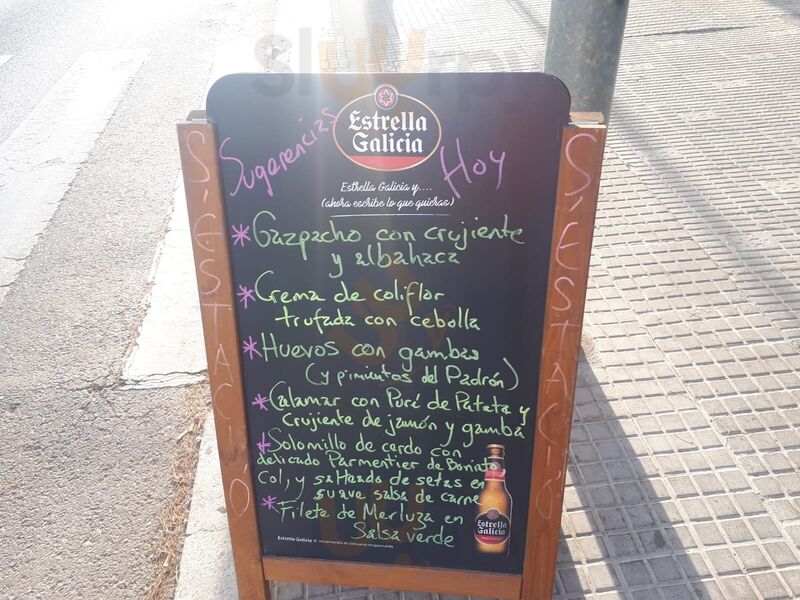 Sluurpy
Estrella
Galicia
Sugerencias Hoy
Estrella Galicia y....
(ahora escribe lo que quieras)
S'ESTACIÓ
S'ESTACIÓ
* Gazpacho con crujiente
y albahaca
* Crema de coliflor
trufada con cebolla
* Huevos con gambas
(y pimientos del Padrón)
* Calamar con Puré de Patata y
crujiente de jamón y gamba
* Solomillo de cerdo con
delicado Parmentier de Boniato,
Col, y salteado de setas en
suave salsa de carne
* Filete de Merluza en
Salsa verde
Estrella
Galicia
Estrella Galicia